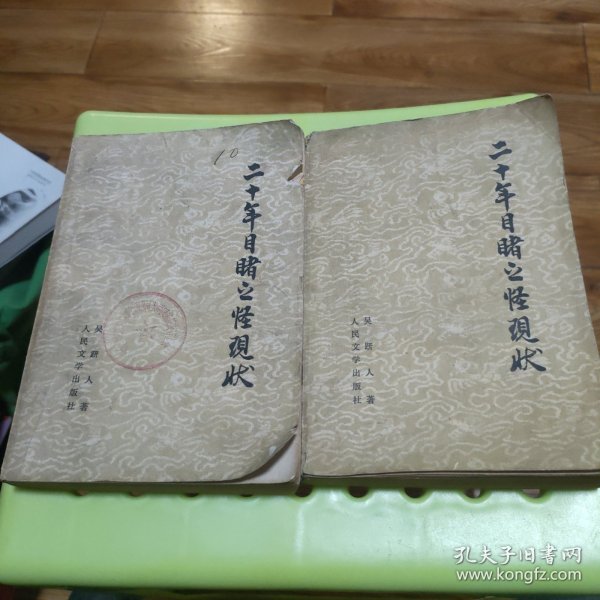 10
二十年目睹之怪現狀
吴趼人著
人民文学出版社
二十年目睹之怪現狀
吴趼人著
人民文学出版社
孔夫子旧书网
www.kongfz.com